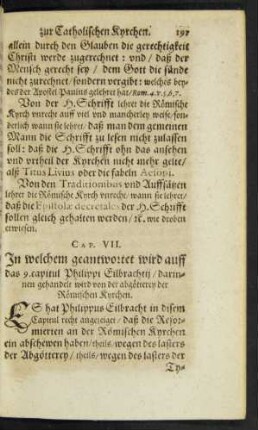 zur Catholischen Kyrchen. 191
allein durch den Glauben die gerechtigkeit
Christi werde zugerechnet: vnd / daß der
Mensch gerecht sey / dem Gott die sünde
nicht zurechnet / sondern vergibt: welches bey-
des der Apostel Paulus gelehret hat / Rom. 4. v. 5. 6. 7.
Von der H. Schrifft lehret die Römische
Kyrch vnrecht auff viel vnd mancherley weise. son-
derlich wann sie lehret / daß man dem gemeinen
Mann die Schrifft zu lesen nicht zulassen
soll: daß die H. Schrifft ohn das ansehen
vnd vrtheil der Kyrchen nicht mehr gelte /
alß Titus Livius oder die fabeln Aesopi.
Von den Traditionibus vnd Auffsätzen
lehret die Römische Kyrch vnrecht / wann sie lehret /
daß die Epistolæ decretales der H. Schrifft
sollen gleich gehalten werden / ꝛc. wie droben
erwiesen.
CAP. VII.
In welchem geantwortet wird auff
das 9. capitul Philippi Eilbrachtij / darin-
nen gehandelt wird von der abgötterey der
Römischen Kyrchen.
ES hat Philippus Eilbracht in disem
Capitul recht angezeiget / daß die Refor-
mierten an der Römischen Kyrchen
ein abschewen haben / theils / wegen des lasters
der Abgötterey / theils / wegen des lasters der
Ty-